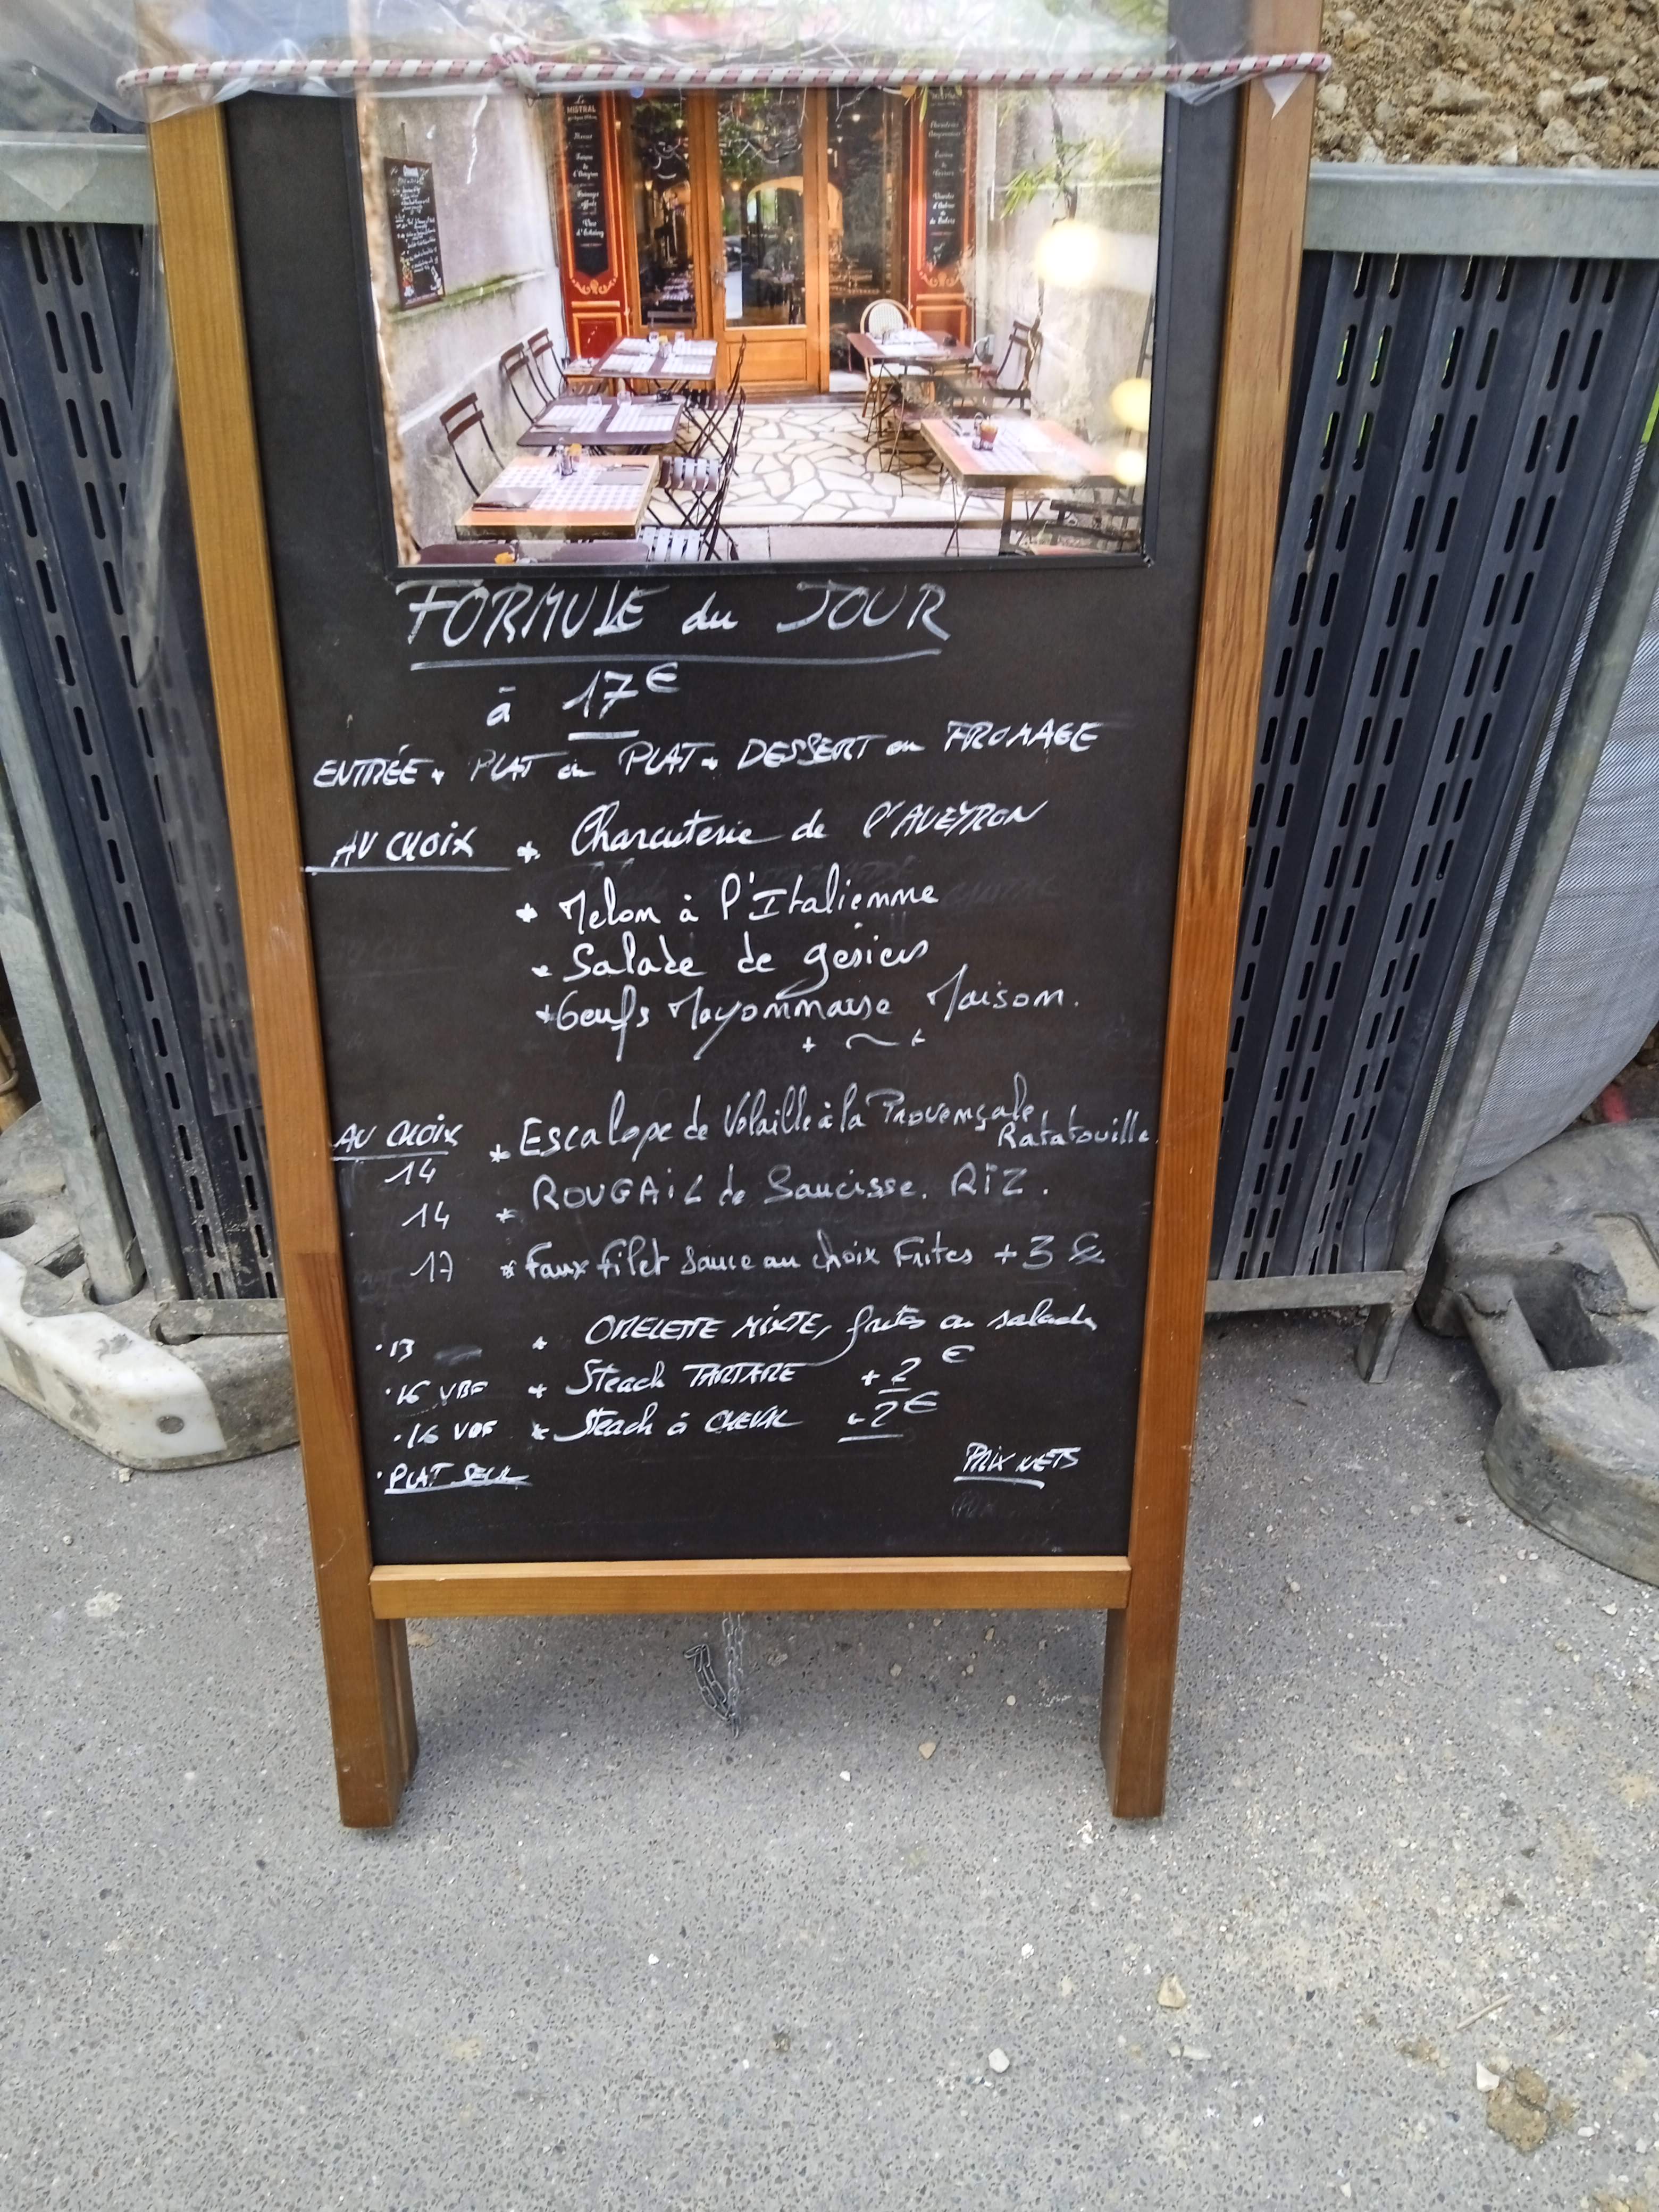 Le
MISTRAL
FORMULE du JOUR
à 17€
ENTRÉE + PLAT ou PLAT + DESSERT ou FROMAGE
AU CHOIX * Charcuterie de l'AVEYRON
* Melon à l'Italienne
* Salade de gésiers
* Oeufs Mayonnaise Maison.
+ ~ +
AU CHOIX * Escalope de Volaille à la Provençale
Ratatouille.
14
14 * ROUGAIL de Saucisse. RIZ.
17 * Faux filet sauce au choix Frites + 3 €
· 13 * OMELETTE MIXTE, frites ou salade
· 16 VBF * Steack TARTARE + 2 €
· 16 VBF * Steack à CHEVAL + 2 €
· PLAT SEUL
PRIX NETS